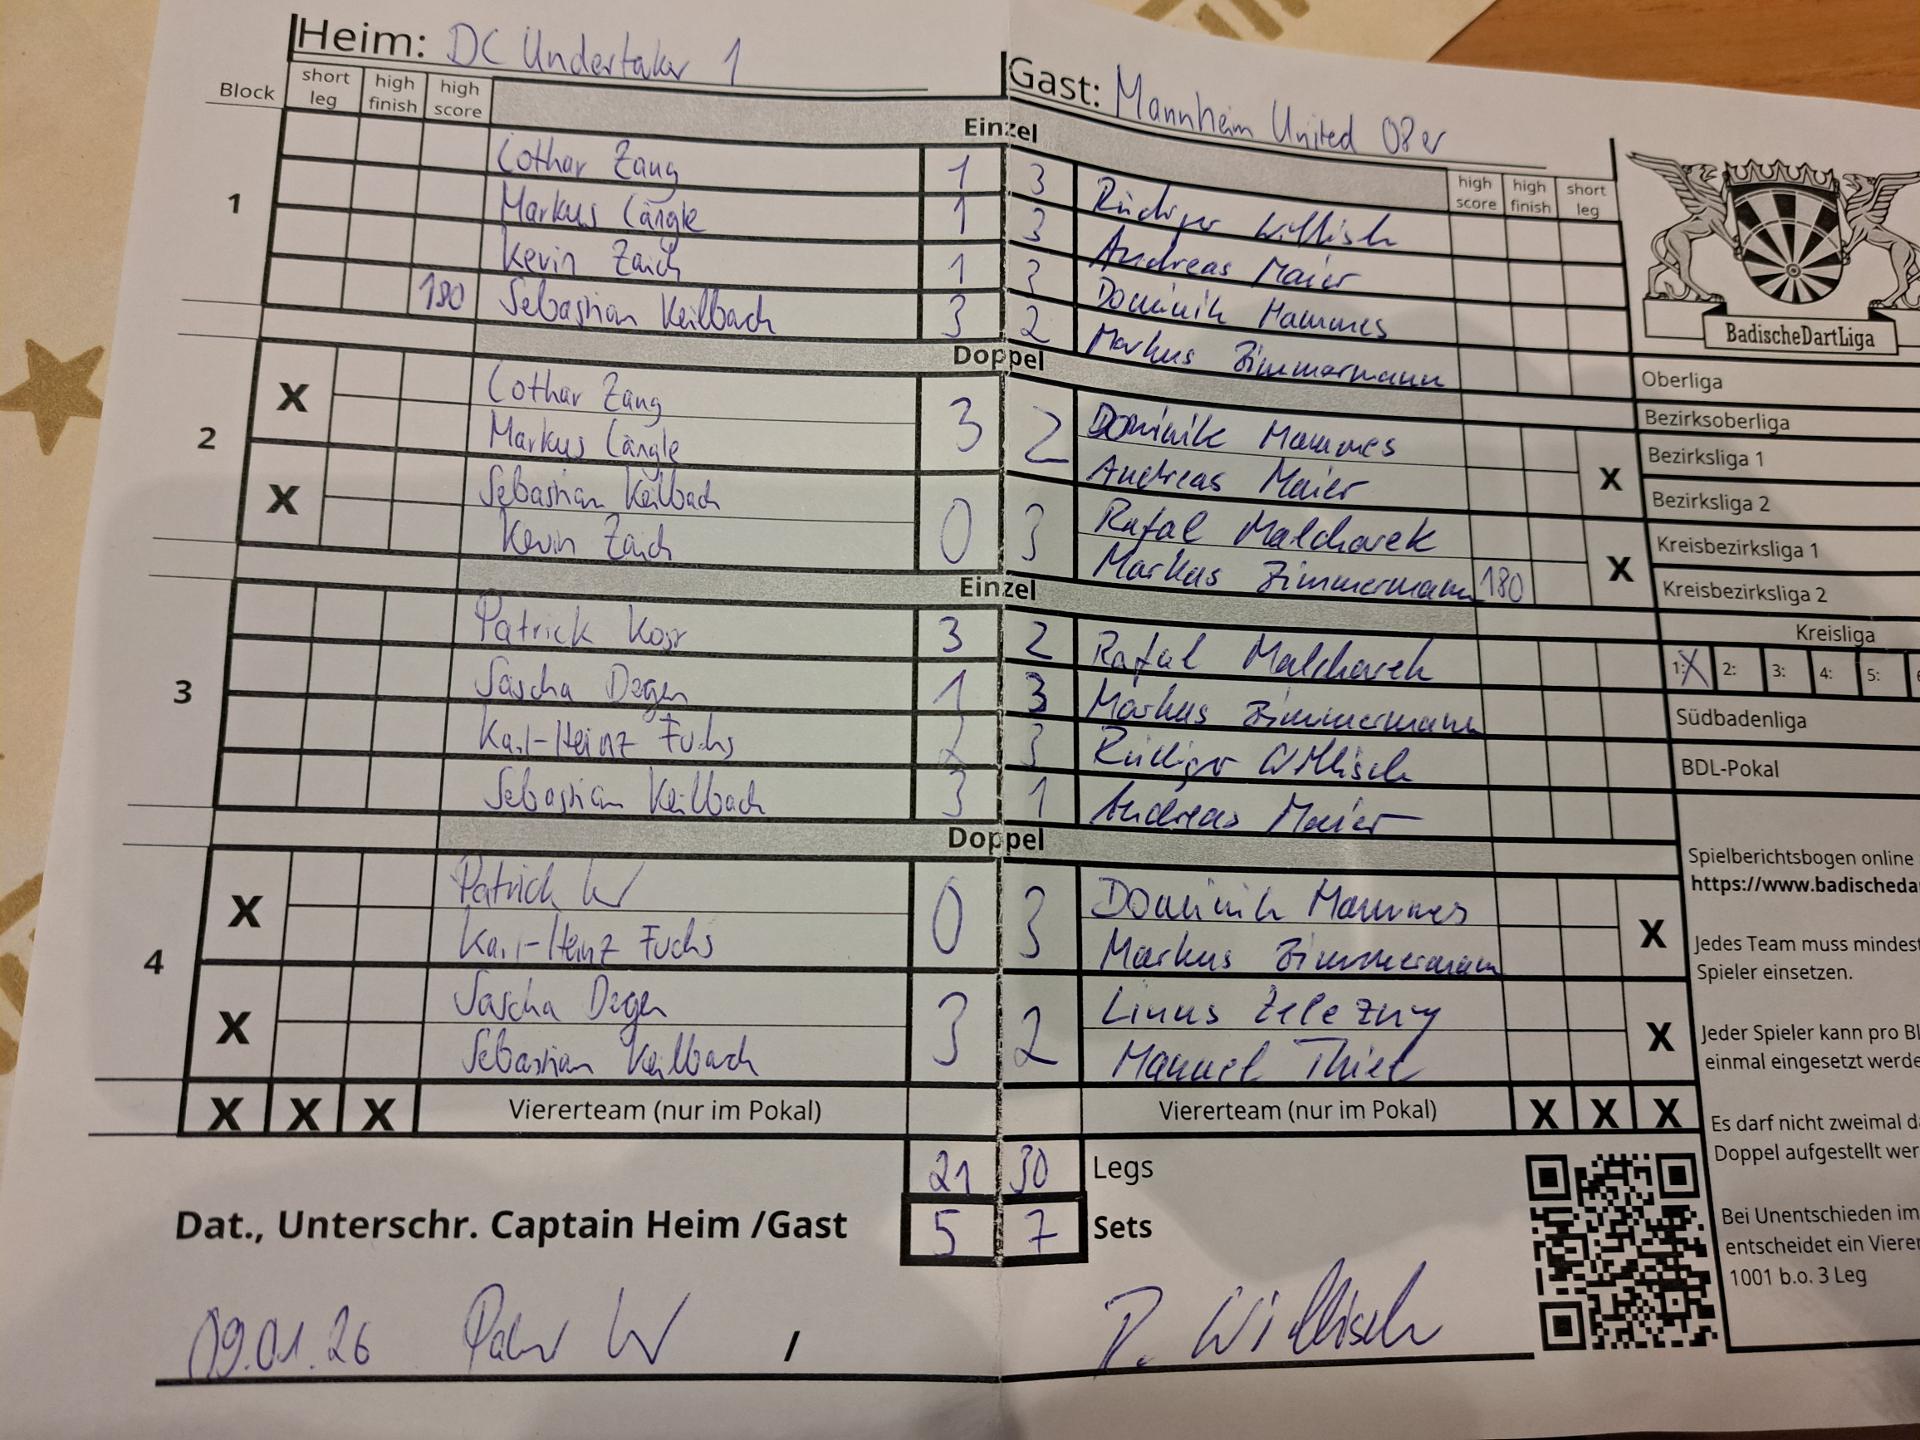 Heim: DC Undertaker 1
Gast: Mannheim United 08er
Block short leg high finish high score
Einzel
high score high finish short leg
1
Lothar Zang 1 3 Rüdiger Willisch
Markus Längle 1 3 Andreas Maier
Kevin Zaich 1 3 Dominik Hammes
180 Sebastian Keilbach 3 2 Markus Zimmermann
Doppel
2
X Lothar Zang 3 2 Dominik Hammes X
Markus Längle Andreas Maier
X Sebastian Keilbach 0 3 Rafal Malcharek X
Kevin Zaich Markus Zimmermann 180
Einzel
3
Patrick 3 2 Rafal Malcharek
Sascha Degen 1 3 Markus Zimmermann
Karl-Heinz Fuchs 2 3 Rüdiger Willisch
Sebastian Keilbach 3 1 Andreas Maier
Doppel
4
X Patrick 0 3 Dominik Hammes X
Karl-Heinz Fuchs Markus Zimmermann
X Sascha Degen 3 2 Linus Zelezny X
Sebastian Keilbach Manuel Thiel
X X X Viererteam (nur im Pokal) Viererteam (nur im Pokal) X X X
21 30 Legs
5 7 Sets
Dat., Unterschr. Captain Heim /Gast
09.01.26 / R. Willisch
BadischeDartLiga
Oberliga
Bezirksoberliga
Bezirksliga 1
Bezirksliga 2
Kreisbezirksliga 1
Kreisbezirksliga 2
Kreisliga
1: X 2: 3: 4: 5:
Südbadenliga
BDL-Pokal
Spielberichtsbogen online
https://www.badischeda
Jedes Team muss mindest
Spieler einsetzen.
Jeder Spieler kann pro Bl
einmal eingesetzt werde
Es darf nicht zweimal da
Doppel aufgestellt wer
Bei Unentschieden im
entscheidet ein Vierer
1001 b.o. 3 Leg